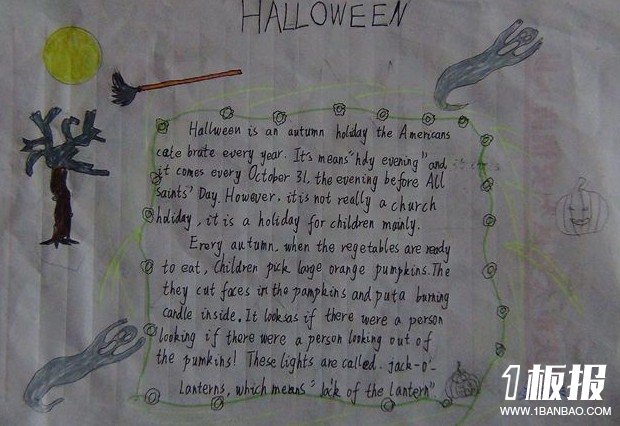 HALLOWEEN
Hallween is an autumn holiday the Americans
cele brate every year. It's means "hdy evening" and
it comes every October 31. the evening before All
saints' Day. However, it is not really a church
holiday, it is a holiday for children mainly.
Erery autumn, when the regetables are ready
to eat, children pick large orange pumpkins. The
they cut faces in the pampkins and put a burning
candle inside. It looks as if there were a person
looking if there were a person looking out of
the pumkins! These lights are called. jack-o'-
Lanterns, which means "lack of the lantern".
1板报
WWW.1BANBAO.COM